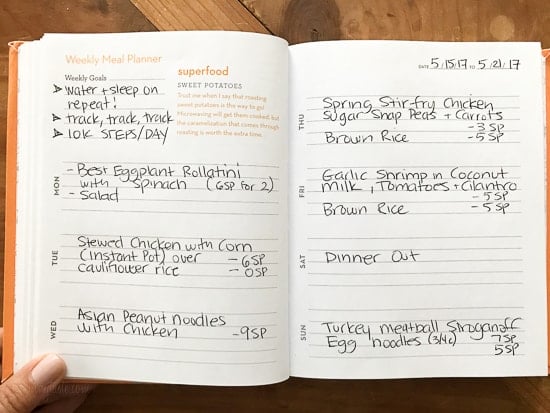 Weekly Meal Planner
Weekly Goals
water + sleep on
repeat!
track, track, track
10K STEPS/DAY
superfood
SWEET POTATOES
Trust me when I say that roasting
sweet potatoes is the way to go!
Microwaving will get them cooked, but
the caramelization that comes through
roasting is worth the extra time.
MON
- Best Eggplant Rollatini
with spinach (6SP for 2)
- Salad
TUE
Stewed Chicken with Corn
(Instant Pot) over - 6SP
cauliflower rice - 0SP
WED
Asian Peanut noodles
with Chicken - 9SP
DATE 5/15/17 TO 5/21/17
THU
Spring Stir-fry Chicken
Sugar Snap Peas + Carrots
- 3 SP
Brown Rice - 5SP
FRI
Garlic Shrimp in Coconut
Milk, Tomatoes + Cilantro
- 5SP
Brown Rice - 5 SP
SAT
Dinner Out
SUN
Turkey meatball Stroganoff
7SP
Egg noodles (3/4c)
5SP